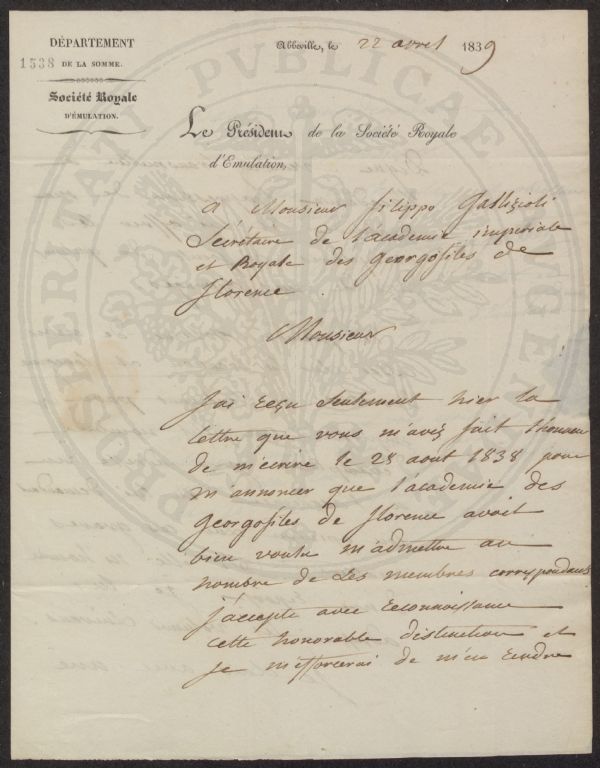 DÉPARTEMENT
1538 DE LA SOMME.
Société Royale
D'ÉMULATION.
Abbeville, le 22 avril 1839
Le Président de la Société Royale
d'Emulation,
A Monsieur filippo Gallizioli
Secrétaire de l'académie impériale
et Royale des georgofiles de
florence.
Monsieur
J'ai reçu seulement hier la
lettre que vous m'avez fait l'honneur
de m'écrire le 28 aout 1838 pour
m'annoncer que l'academie des
georgofiles de florence avait
bien voulu m'admettre au
nombre de ses membres correspondants
j'accepte avec reconnaissance
cette honorable distinction et
je m'efforcerai de m'en rendre
PROSPERITATI PUBLICAE AUGENDAE